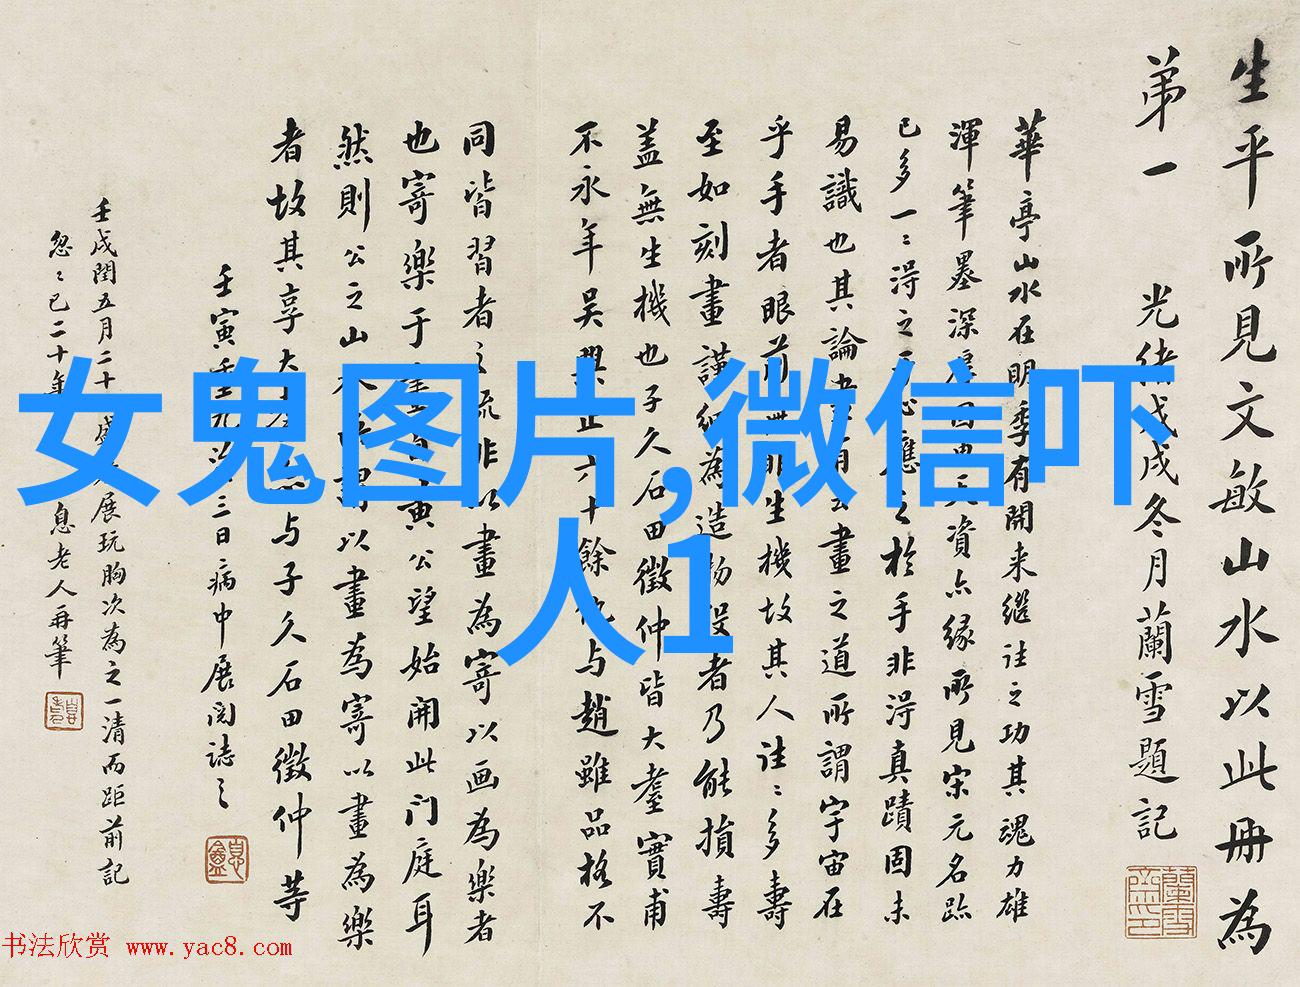 生平所見文敏山水以此冊為
第一 光緒戊戌冬月蘭雪題記
華亭山水在明季有開来繼往之功其魂力雄
渾筆墨深厚
資亦緣所見宋元名跡
已多一〻得之
應之於手非得真蹟固未
易識也其論畫有云畫之道所謂宇宙在
乎手者眼前無非生機故其人往〻多壽
至如刻畫謹細為造物役者乃能損壽
蓋無生機也子久石田徵仲皆大耋實甫
不永年吴興止六十餘仇与趙雖品格不
同皆習者之流非以畫為寄以画為樂者
也寄樂于畫自黄公望始開此门庭耳
然則公之山水
以畫為寄以畫為樂
者故其享大
与子久石田徵仲等
壬寅重九
三日病中展阅誌之
壬戌閏五月二十
展玩胸次為之一清而距前記
忽〻已二十年
息老人再筆
女鬼图片,微信吓
人1
书法欣赏 www.yac8.com